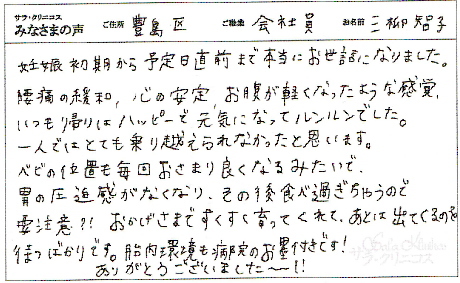 サラ・クリニコス
みなさまの声 ご住所 豊島区 ご職業 会社員 お名前 三柳智子
妊娠初期から予定日直前まで本当にお世話になりました。
腰痛の緩和、心の安定、お腹が軽くなったような感覚、
いつも帰りはハッピーで元気になってルンルンでした。
一人ではとても乗り越えられなかったと思います。
ベビの位置も毎回おさまり良くなるみたいで、
胃の圧迫感がなくなり、その後食べ過ぎちゃうので
要注意?! おかげさまですくすく育ってくれて、あとは出てくるのを
待つばかりです。胎内環境も病院のお墨付きです!
ありがとうございました〜!!
サラ・クリニコス